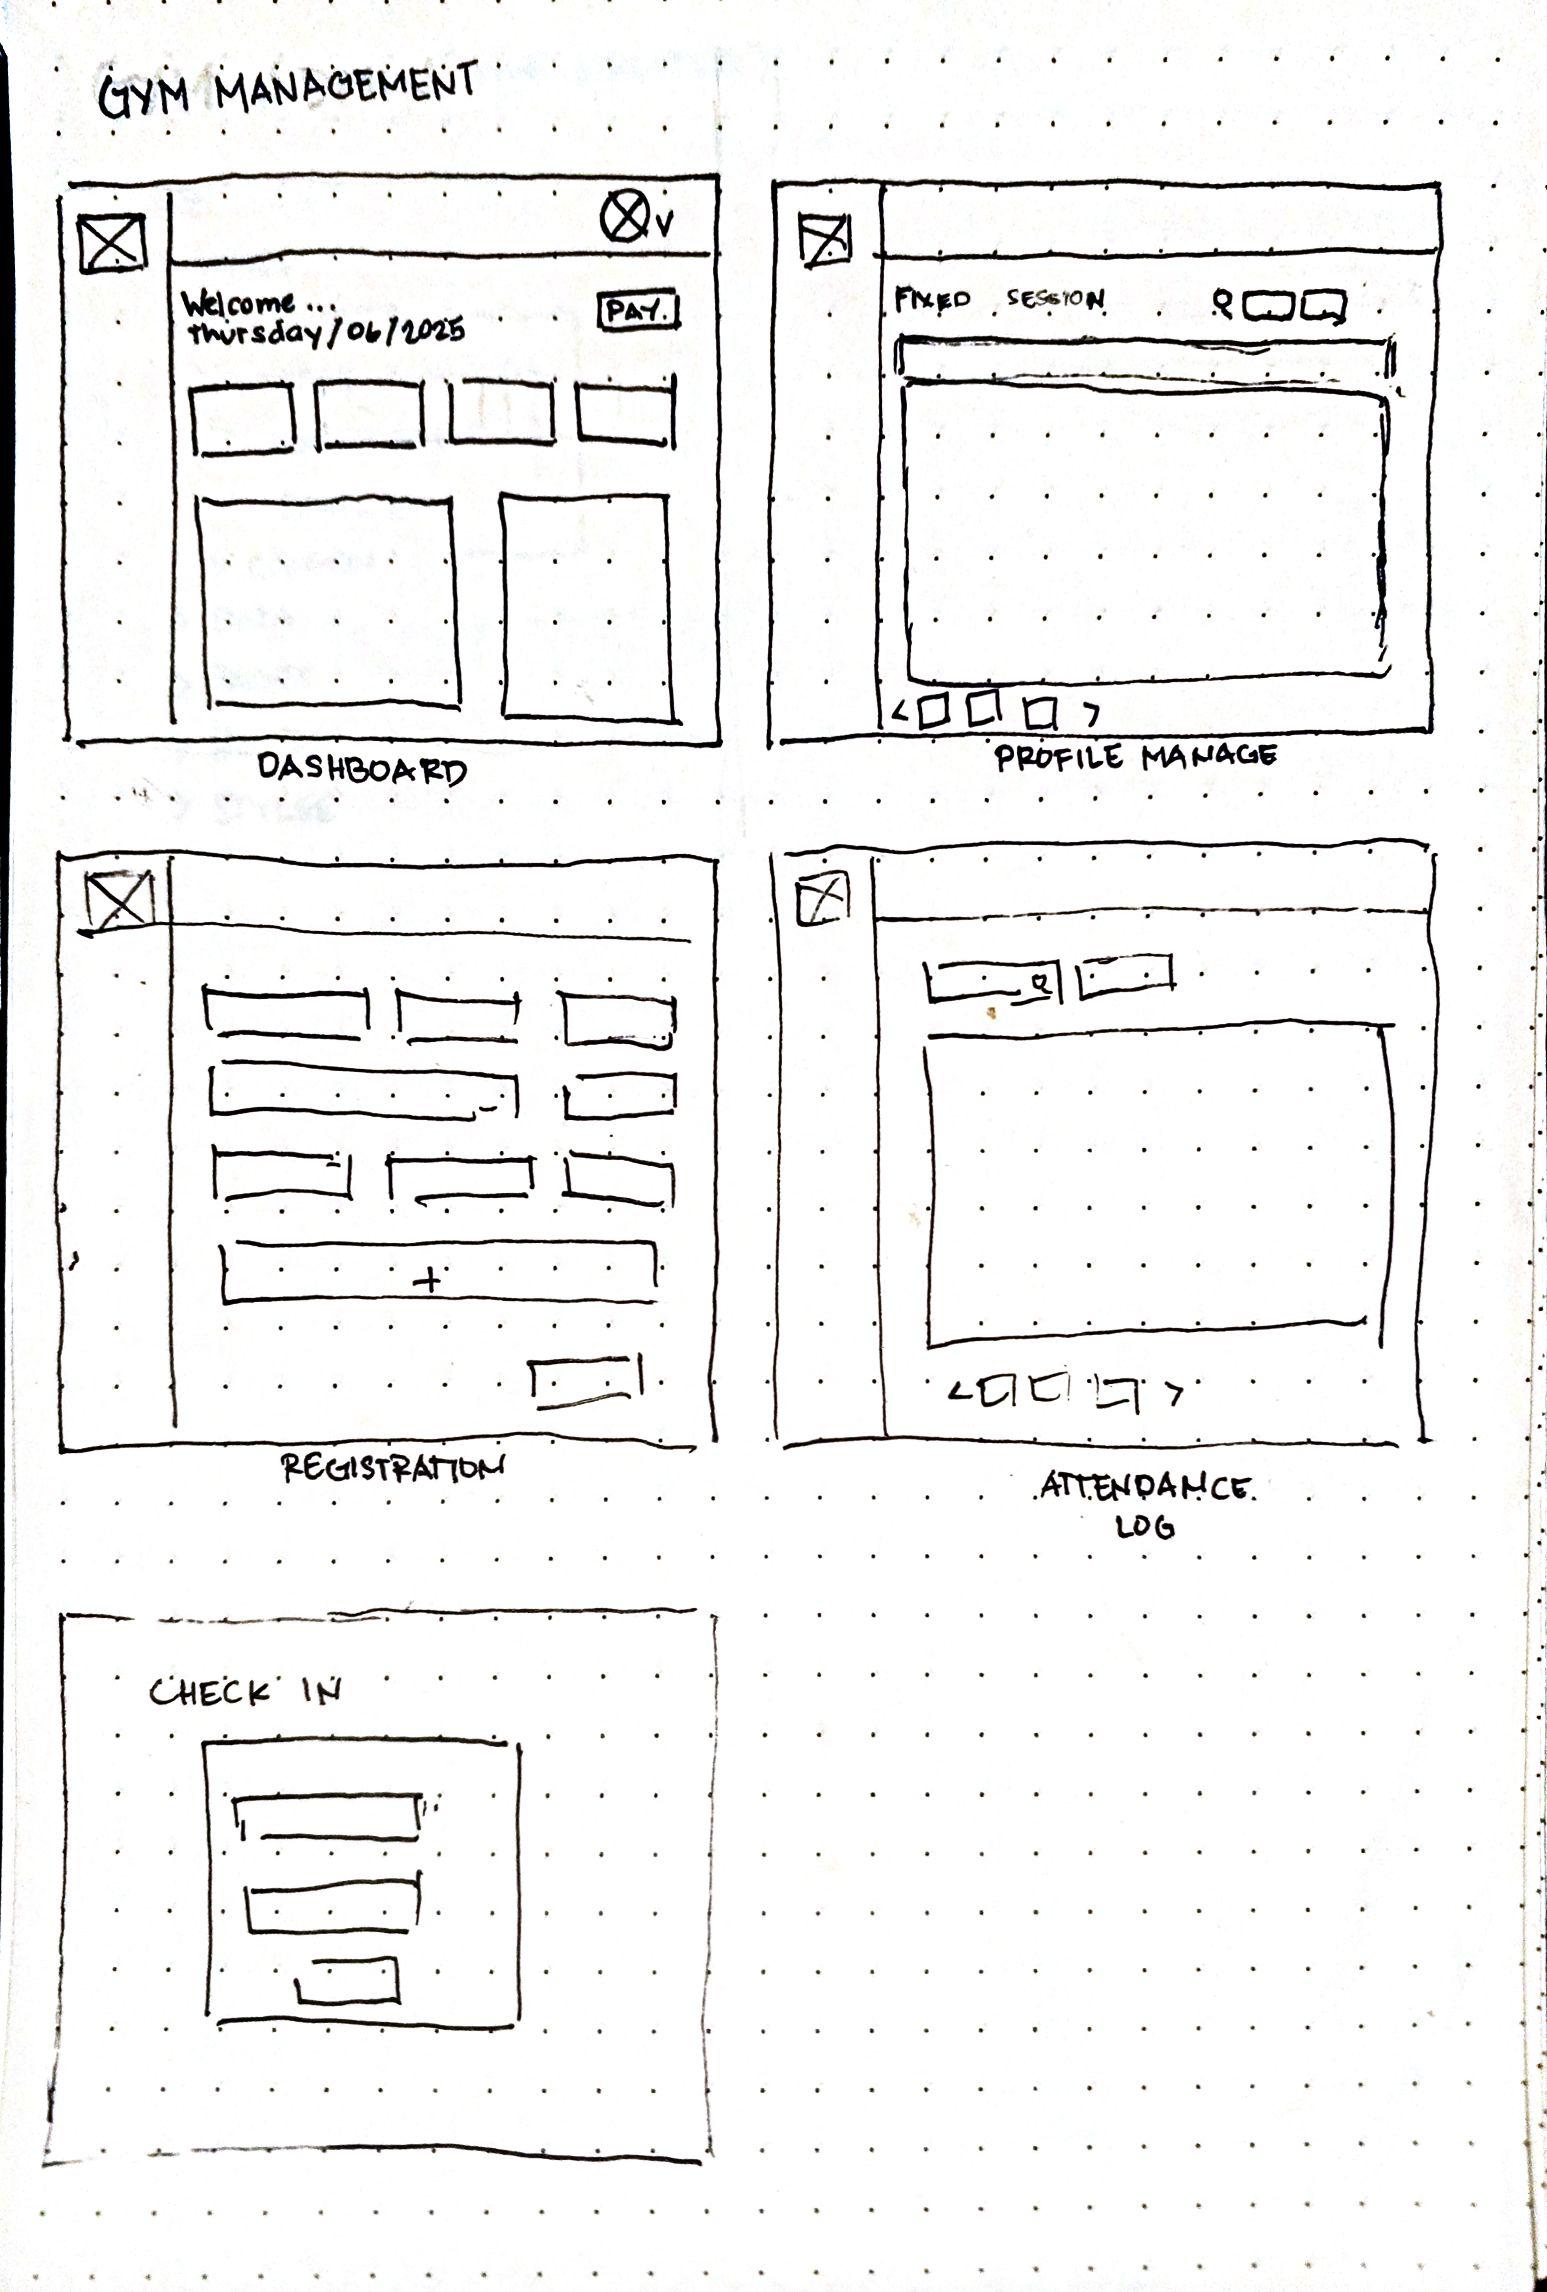 GYM MANAGEMENT
V
Welcome ...
Thursday/06/2025
PAY.
DASHBOARD
FIXED SESSION
< >
PROFILE MANAGE
+
REGISTRATION
< >
ATTENDANCE
LOG
CHECK IN